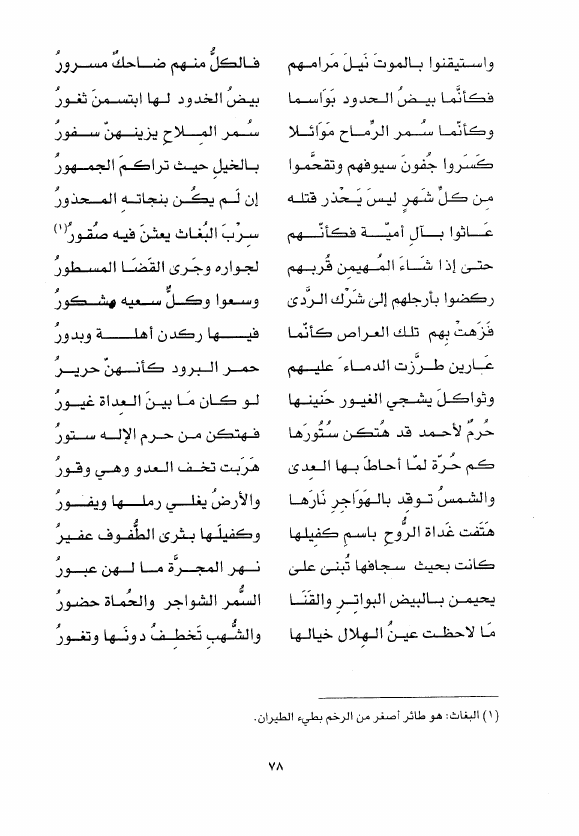 واستيقنوا بالموت نَيلَ مَرامهم فالكلُّ منهم ضاحكٌ مسرورُ
فكأنَّما بيضُ الحدود بَوَاسما بيضُ الخدود لها ابتسمنَ ثغورُ
وكأنّما سُمر الرِّماح مَوَائلا سُمر الملاح يزينهنّ سفورُ
كَسَروا جُفونَ سيوفهم وتقحَّموا بالخيل حيث تراكمَ الجمهورُ
من كلِّ شَهرٍ ليسَ يَحْذر قتله إن لَم يكُن بنجاته المحذورُ
عَاثوا بآلِ أميّة فكأنّهم سِرْبَ البُغاث يعثنَ فيه صقورُ(١)
حتى إذا شَاءَ المُهيمن قُربهم لجواره وجَرى القَضَا المسطورُ
ركضوا بأرجلهم إلى شَرْك الرَّدى وسعوا وكلٌّ سعيه مشكورُ
فَزَهتْ بهم تلك العراص كأنّما فيها ركدن أهلة وبدورُ
عَارين طرَّزت الدماءَ عليهم حمر البرود كأنهنّ حريرُ
وثواكلَ يشجي الغيور حَنينها لو كان مَا بينَ العداة غيورُ
حُرمٌ لأحمد قد هُتكن سُتورَها فهتكن من حرم الإله ستورُ
كم حُرّة لمّا أحاطَ بها العدى هَرَبت تخف العدو وهي وقورُ
والشمسُ توقد بالهَوَاجرِ نَارَها والأرضُ يغلي رملها ويفورُ
هَتَفت غَداة الرُّوح باسم كفيلها وكفيلَها بثرى الطُّفوف عفيرُ
كانت بحيث سجافها تُبنى على نهر المجرَّة ما لهن عبورُ
يحيمن بالبيض البواترِ والقَنَا السُّمر الشواجر والحُماة حضورُ
مَا لاحظت عينُ الهلال خيالها والشُّهب تَخطفُ دونَها وتغورُ
(١) البغاث: هو طائر أصغر من الرخم بطيء الطيران.
٧٨